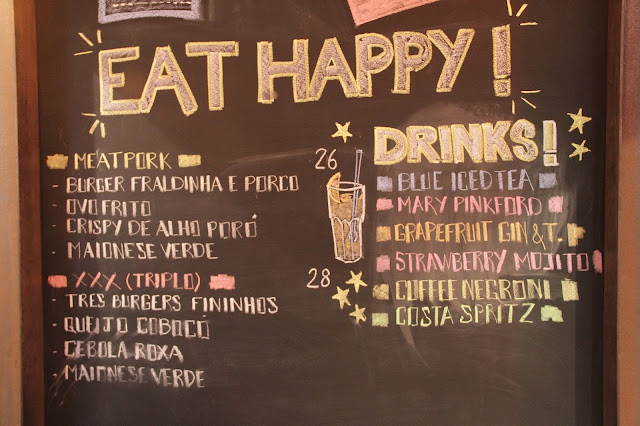 EAT HAPPY!
MEATPORK 26
- BURGER FRALDINHA E PORCO
- OVO FRITO
- CRISPY DE ALHO PORÓ
- MAIONESE VERDE
XXX (TRIPLO) 28
- TRES BURGERS FININHOS
- QUEIJO COBOCÓ
- CEBOLA ROXA
- MAIONESE VERDE
DRINKS!
BLUE ICED TEA
MARY PINKFORD
GRAPEFRUIT GIN & T.
STRAWBERRY MOJITO
COFFEE NEGRONI
COSTA SPRITZ